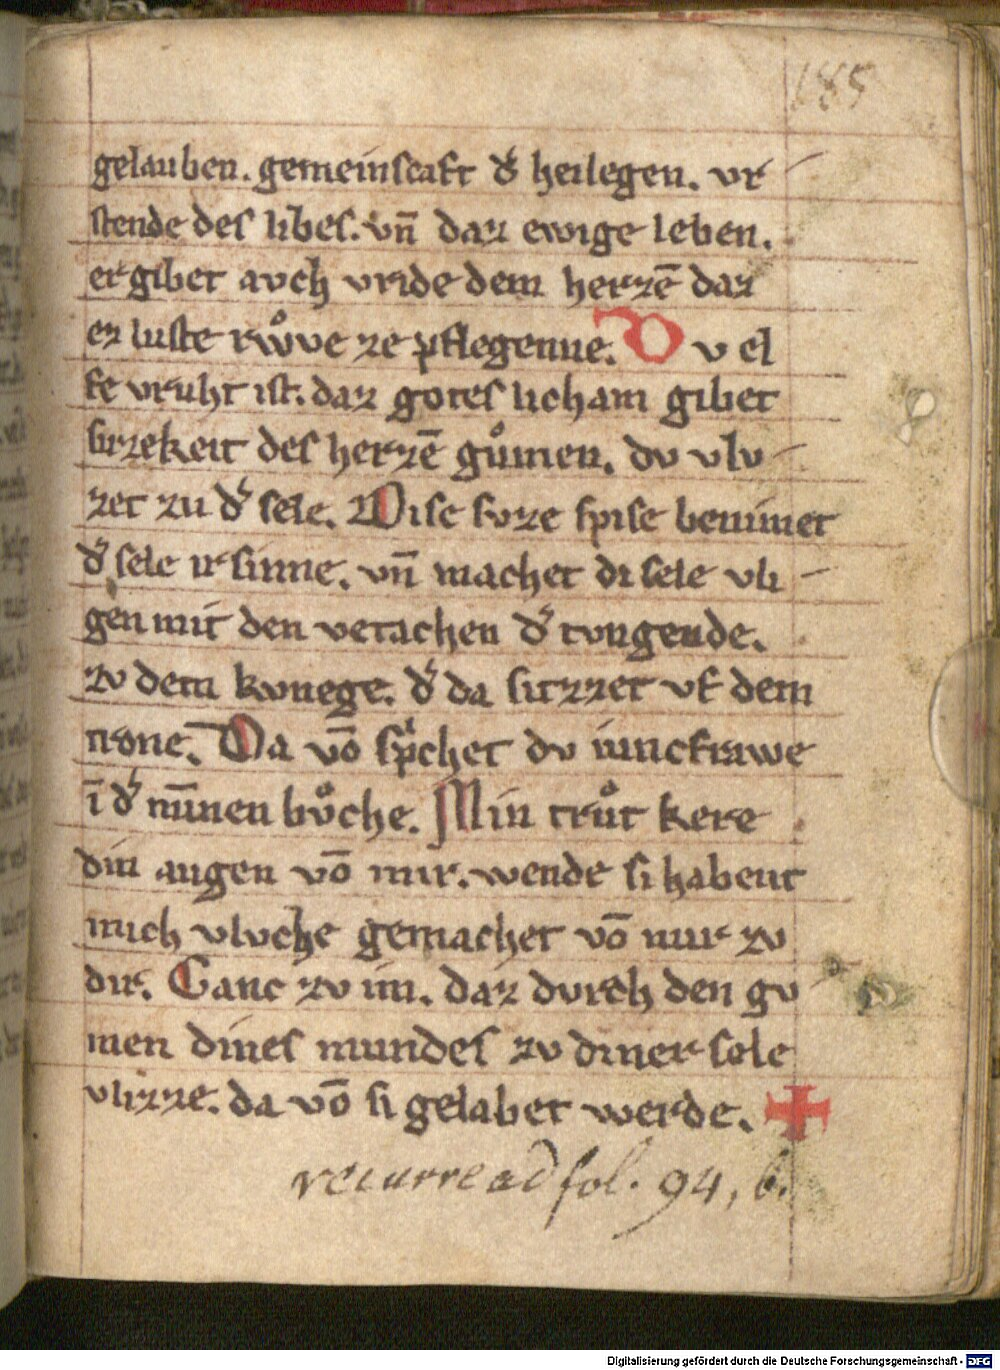 185
gelauben. gemeinscaft d͛ heilegen. vr
stende des libes. vn̄ daz ewige leben.
er gibet avch vride dem herzē daz
ez luste rwͦve ze pflegenne. D v el
fe vruht ist. daz gotes licham gibet
suzekeit des herzē guͦmen. dv vlv
zet zu d͛ sele. Dise svze spise benimet
d͛ sele ir sinne. vn̄ machet di sele vli
gen mit den vetachen d͛ tvngende.
zv dem kvnege. d͛ da sitzzet vf dem
trone. Da vō spͣchet dv iuncfrawe
ī d͛ mīnnen bvͦche. Min truͦt kere
din augen vō mir. wende si habent
mich vlvche gemachet vō mir zv
dir. Ganc zv im. daz dvrch den gv
men dines mundes zv diner sele
vlizze. da vō si gelabet werde.
recurre ad fol. 94, b.
Digitalisierung gefördert durch die Deutsche Forschungsgemeinschaft - DFG